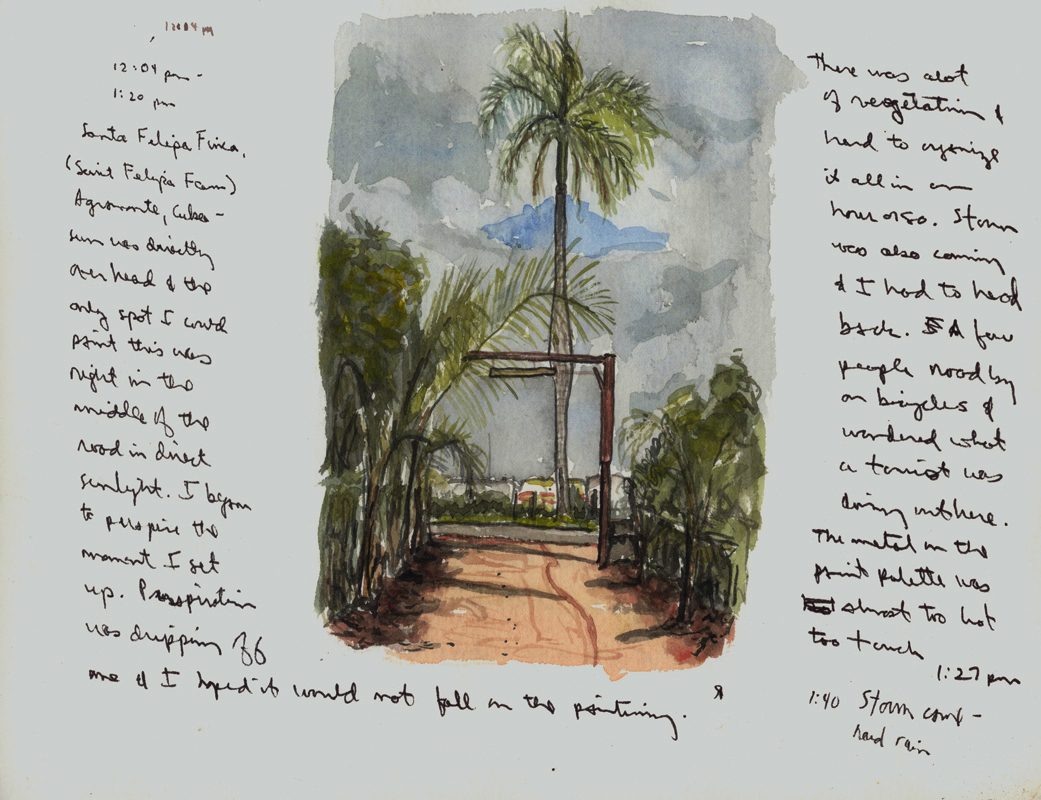 12:04 PM
12:04 pm -
1:20 pm
Santa Felipa Finca,
(Saint Felipa Farm)
Agramonte, Cuba -
sun was directly
overhead & the
only spot I could
paint this was
right in the
middle of the
road in direct
sunlight. I began
to perspire the
moment I set
up. Perspiration
was dripping off
me & I hoped it would not fall on the painting.
There was alot
of vegetation &
hard to organize
it all in an
hour or so. Storm
was also coming
& I had to head
back. A few
people rode by
on bicycles &
wondered what
a tourist was
doing out here.
The metal on the
paint palette was
almost too hot
too touch
1:27 pm
1:40 Storm came -
hard rain